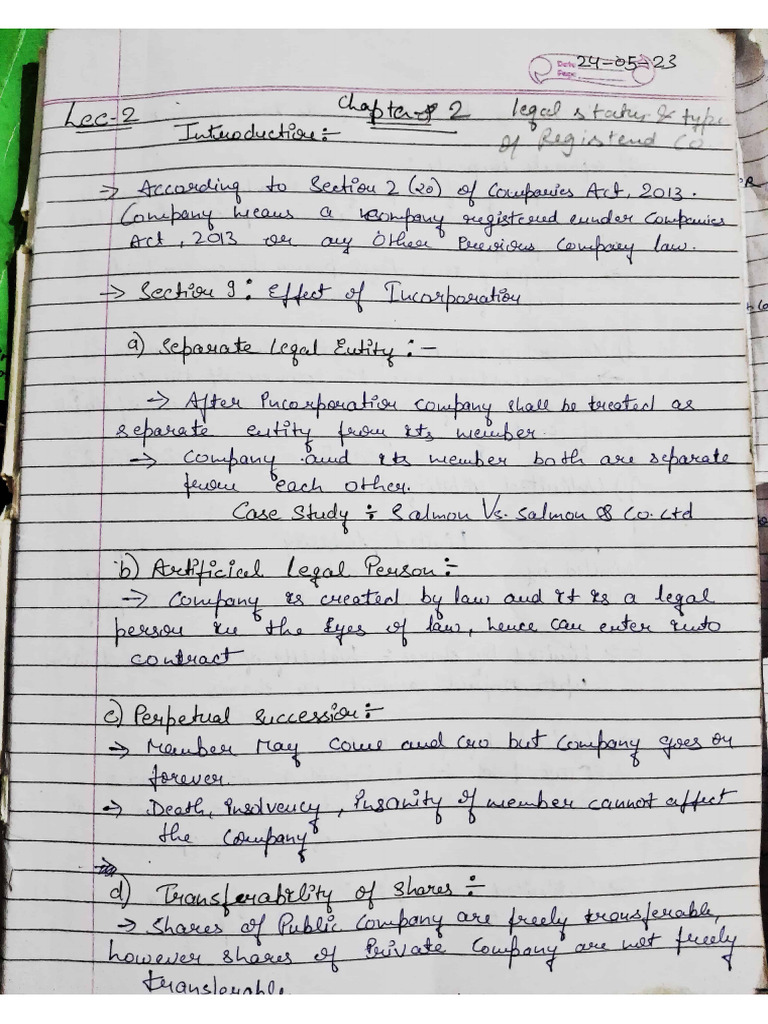 Date 24-05-23
Page
Lec-2 Chapter 2 legal status & type
Introduction:- of Registend Co
→ According to Section 2 (20) of Companies Act, 2013.
Company means a company registered under Companies
Act, 2013 or any other Previous Company law.
→ Section 9: Effect of Incorporation
a) Separate Legal Entity:-
→ After Incorporation company shall be treated as
separate entity from its member.
→ Company and its member both are separate
from each other.
Case Study ÷ Salmon Vs. Salmon & Co. Ltd
b) Artificial Legal Person:-
→ Company is created by law and it is a legal
person in the Eyes of law, hence can enter into
contract
c) Perpetual Succession:-
→ Member May come and Go but Company goes on
forever.
→ Death, Insolvency, Insanity of member cannot affect
the Company
d) Transferability of Shares:-
→ Shares of Public Company are freely transferable,
however shares of Private Company are not freely
transferable